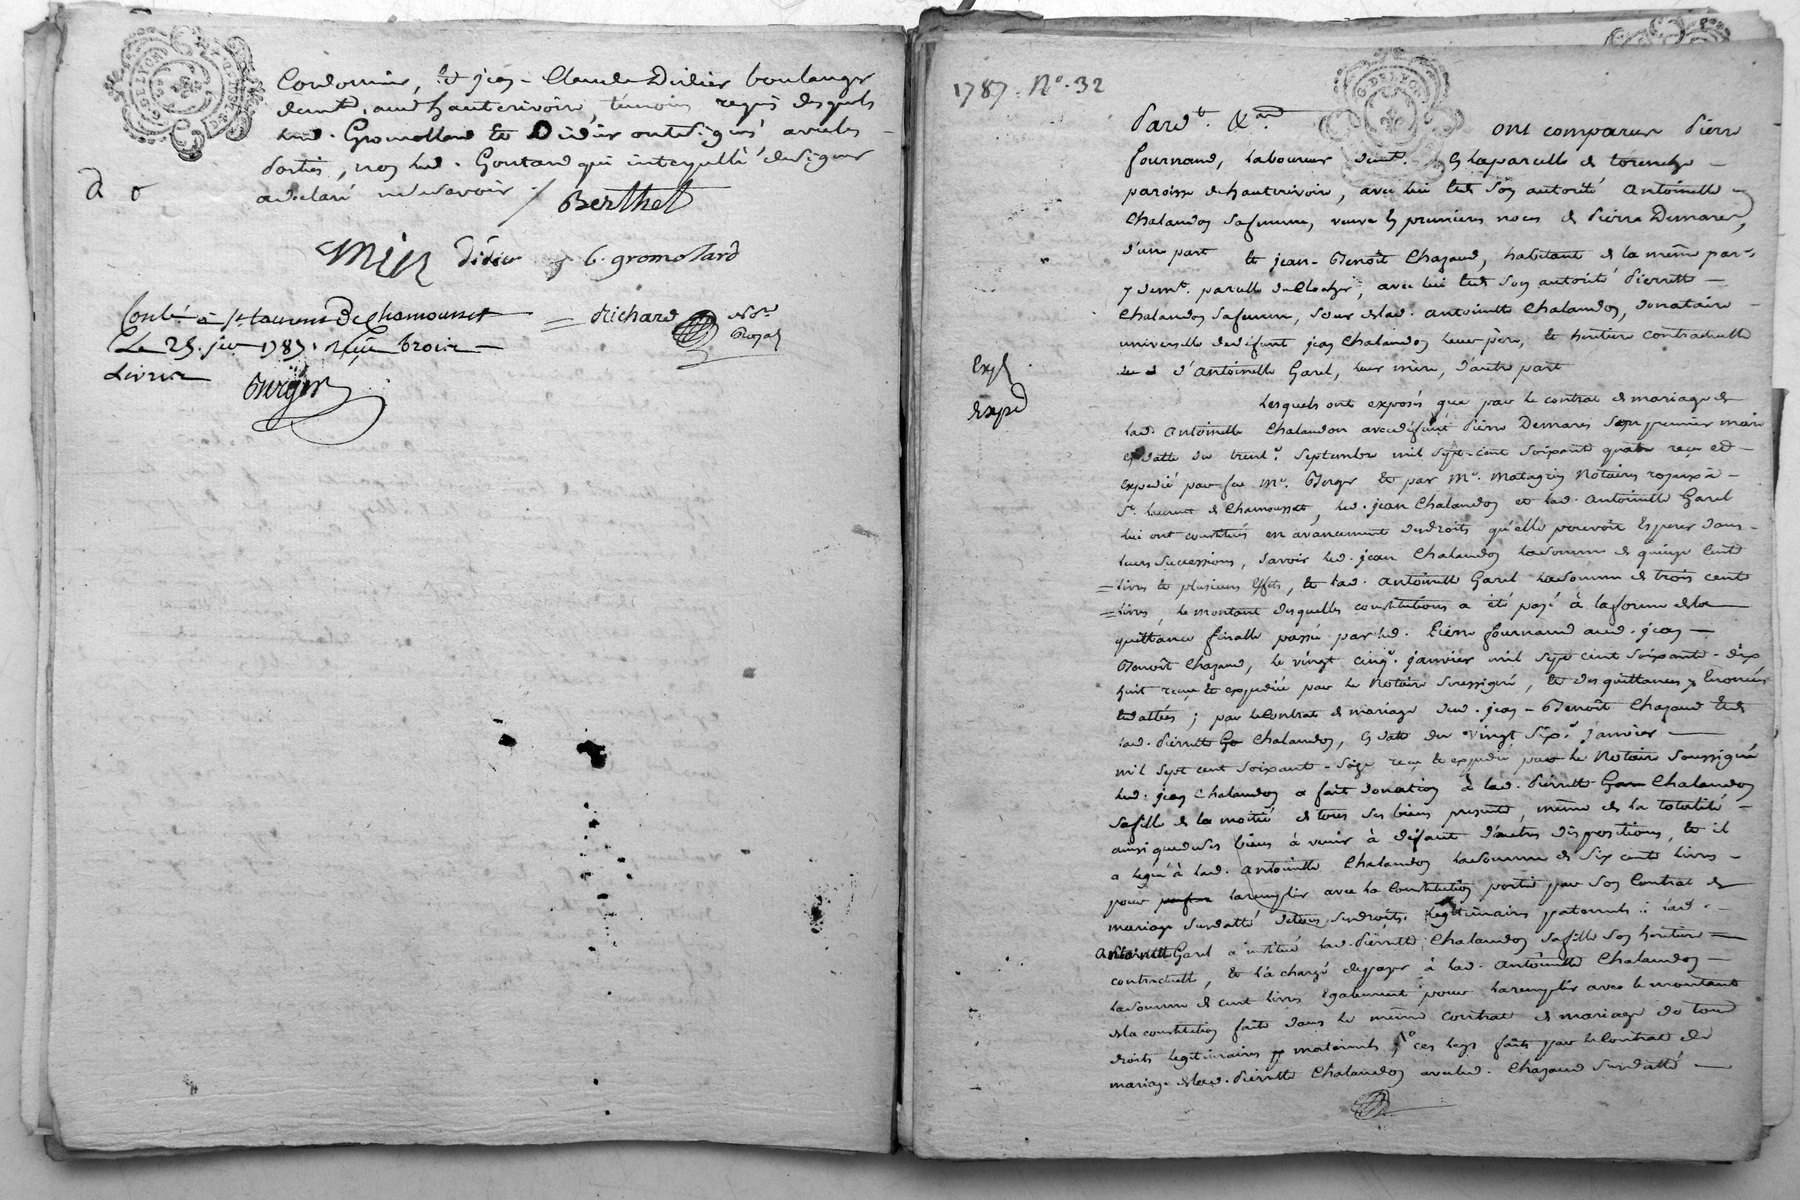 Cordonnier, & jean-Claude Didier boulanger
demt. aud hauterivoire, témoins requis desquels
led. Gromollard & Didier ont signés avec les
parties, non led. Goutard qui interpellé de signer
a declaré ne le savoir
Berthet
Didier
G. gromolard
Conlé a St. Laurent De Chamousset
Richard
Nore
Royal
Le 25. jer 1787. Reçu trois
Livres
Burger
1787. No. 32
Pardt. &a. ont comparus Pierre
fournand, laboureur demt. en la parcelle de torenche
paroisse de hauterivoire, avec lui et de son autorité Antoinette
Chalandon sa femme, veuve en premieres noces de Pierre Demares,
d'une part & jean-Benoît Chazaud, habitant de la même parr.
y demt. parcelle du Clocher, avec lui et de son autorité Pierrette
Chalandon sa femme, sœur de lad. Antoinette Chalandon, donataire
universelle de defunt jean Chalandon leur père, & heritiere contractuelle
d'Antoinette Garel, leur mère, d'autre part
Expé
Lesquels ont exposés que par le contrat de mariage de
lad. Antoinette Chalandon avec defunt Pierre Demares son premier mari
en datte du trente. Septembre mil sept-cent soixante quatre reçu et
expedié par feu Me. Berger & par Me. Matagrin Notaires royaux à
St. Laurent de Chamousset, led. jean Chalandon et lad. Antoinette Garel
lui ont constitués en avancement des droits qu'elle pouvoit Esperer dans
leurs Successions, savoir led. jean Chalandon la somme de quinze Cent
livres & plusieurs effets, & lad. Antoinette Garel la somme de trois cent
livres, le montant desquelles constitutions a été payé à la forme de la
quittance finalle passée par led. Pierre fournand aud. jean
Benoît Chazaud, le vingt cinq. janvier mil sept cent soixante-dix
huit reçue & expediée par le Notaire soussigné, & des quittances y Enoncées
& dattées; par le Contrat de mariage dud. jean-Benoît Chazaud & de
lad. Pierrette Chalandon, en datte du vingt six. janvier
mil sept cent soixante-seize reçu & expedié par le Notaire soussigné
led. jean Chalandon a fait donation à lad. Pierrette Chalandon
sa fille de la moitié de tous ses biens presents, même de la totalité
ainsi que de ses biens à venir à defaut d'autres dispositions, & il
a legué à lad. Antoinette Chalandon la somme de six cents livres
pour la remplir avec la Constitution portée par son Contrat de
mariage susdatté de tous ses droits legitimaires paternels; lad.
Antoinette Garel a institué lad. Pierrette Chalandon sa fille son heritiere
contractuelle, & l'a chargé de payer à lad. Antoinette Chalandon
la somme de cent livres également pour la remplir avec le montant
de la constitution faite dans le même contrat de mariage de tous
droits legitimaires maternels, ces legs faits par le Contrat de
mariage de lad. Pierrette Chalandon avec led. Chazaud susdatté